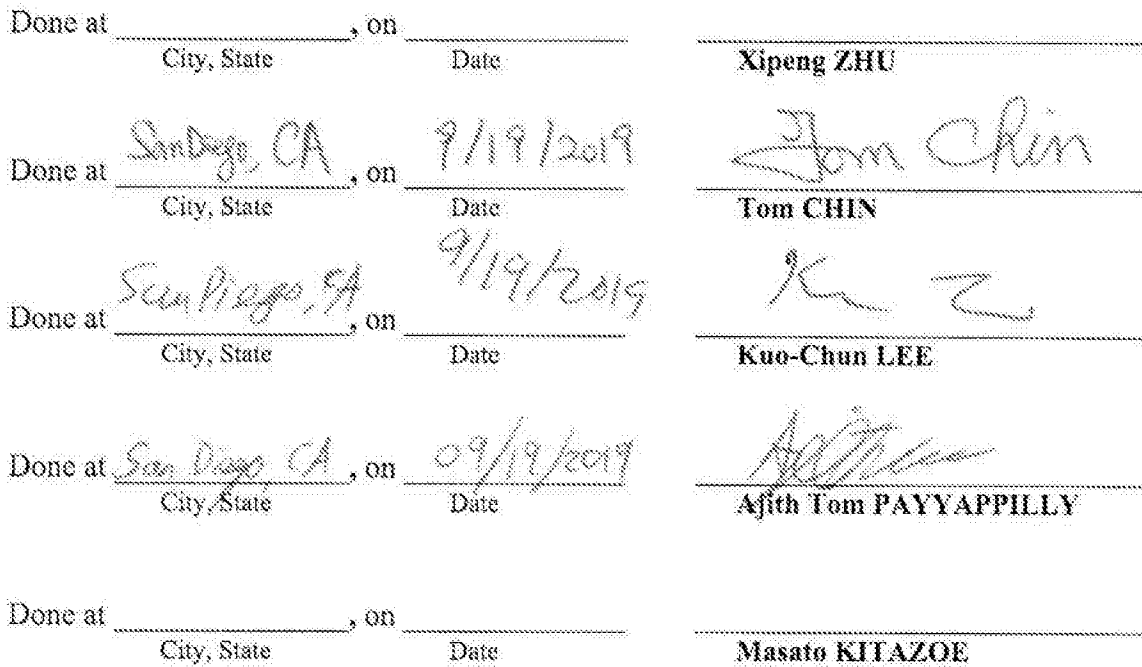 Done at , on
City, State Date Xipeng ZHU
Done at San Diego, CA , on 9/19/2019 Tom Chin
City, State Date Tom CHIN
Done at San Diego, CA , on 9/19/2019
City, State Date Kuo-Chun LEE
Done at San Diego, CA , on 09/19/2019
City, State Date Ajith Tom PAYYAPPILLY
Done at , on
City, State Date Masato KITAZOE